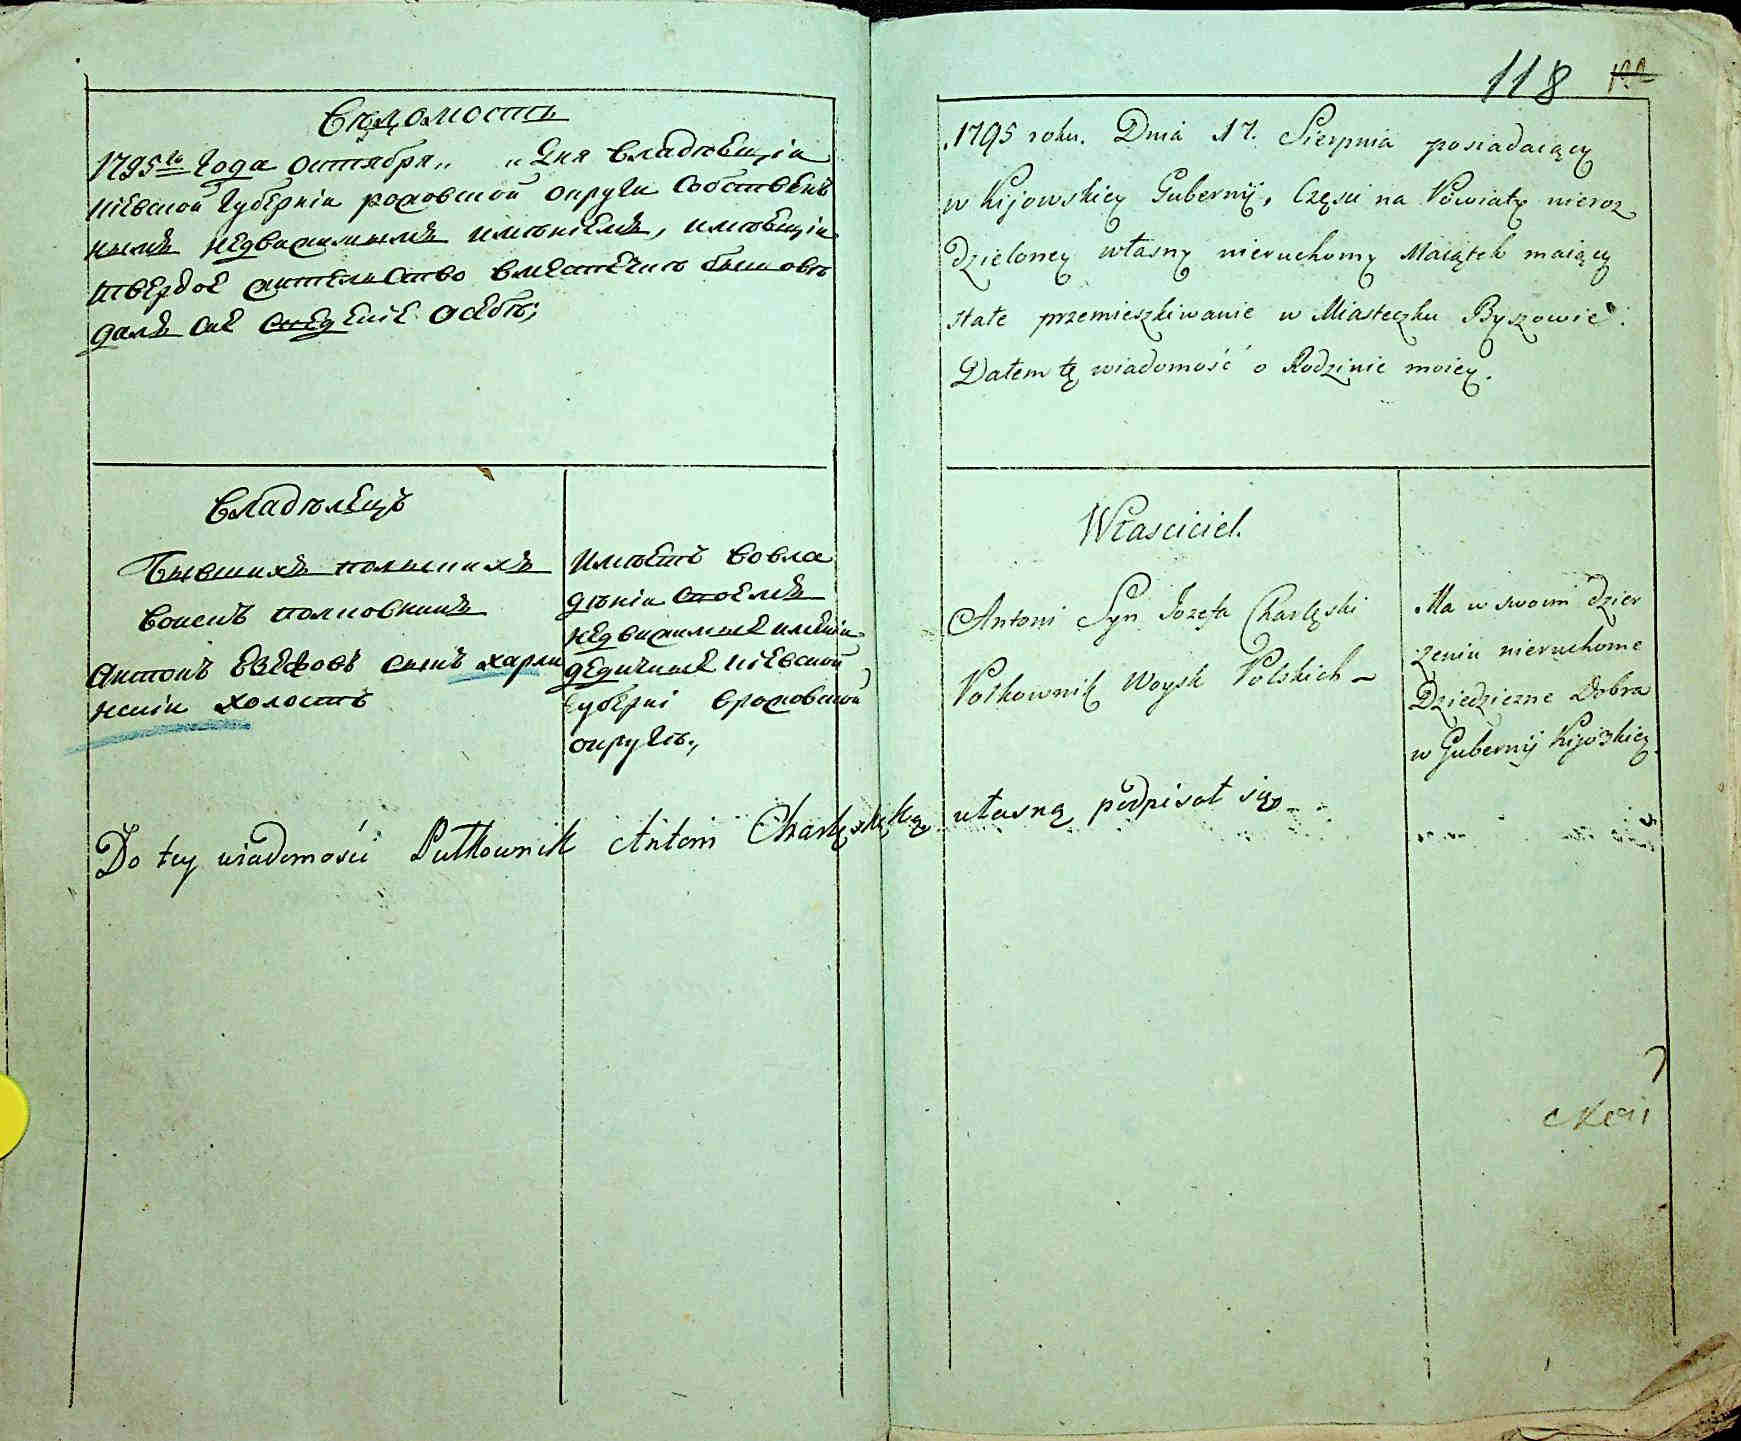 Вѣдомость
1795го Года октября „ „ Дня владѣющiи
кiевской губернiи роховской округи собствен
нымъ недвижимымъ имѣнiемъ, имѣющiи
твердое жительство вместечкѣ бышовѣ
далъ сiе сведенiе осебѣ;
Владѣлецъ
Бывшихъ польскихъ
воискъ полковникъ
Антонъ Езефовъ сынъ харлин
скiи холостъ
Имѣетъ вовла
дѣнiи своемъ
недвижимые именiи
дедичные кiевской
губернi вроховской
округѣ,
118
1795 roku. Dnia 17. Sierpnia posiadaiący
w Kijowskiey Gubernij, Częsci na Powiaty nieroz
dzieloney własny nieruchomy Maiątek maiący
stałe przemieszkiwanie w Miasteczku Byszowie.
Dałem tę wiadomość o Rodzinie moiey.
Własciciel.
Antoni Syn Jozefa Charlęski
Połkownik Woysk Polskich
Ma w swoim dzier
żeniu nieruchome
Dziedziczne Dobra
w Gubernij Kijowskiey
Do tey wiadomości Pułkownik Antoni Charlęski Ręką własną podpisał się